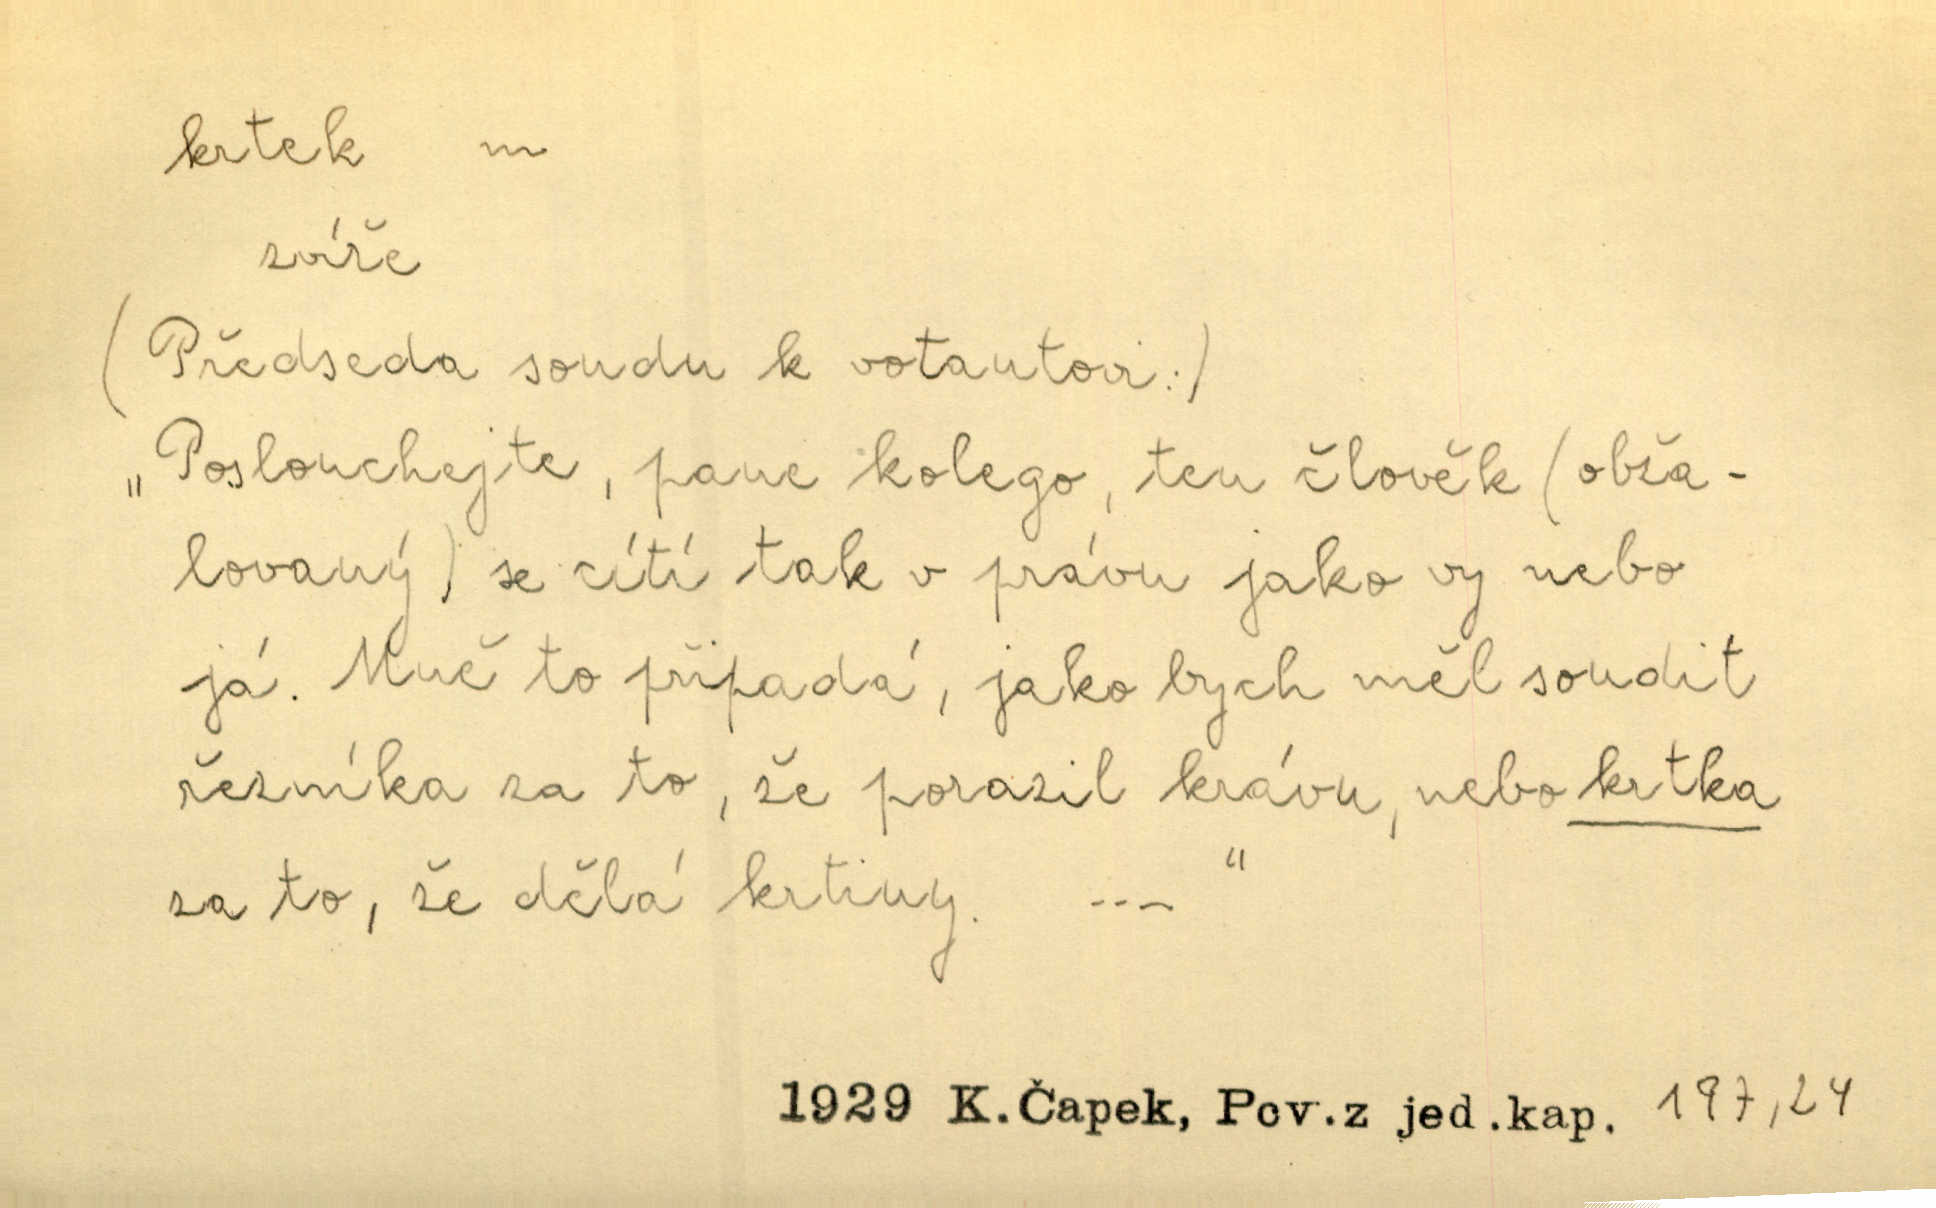 krtek m
zvíře
(Předseda soudu k votantovi:)
„Poslouchejte, pane kolego, ten člověk (obža-
lovaný) se cítí tak v právu jako vy nebo
já. Mně to připadá, jako bych měl soudit
řezníka za to, že porazil krávu, nebo krtka
za to, že dělá krtiny. --- "
1929 K.Čapek, Pov.z jed.kap. 197,24